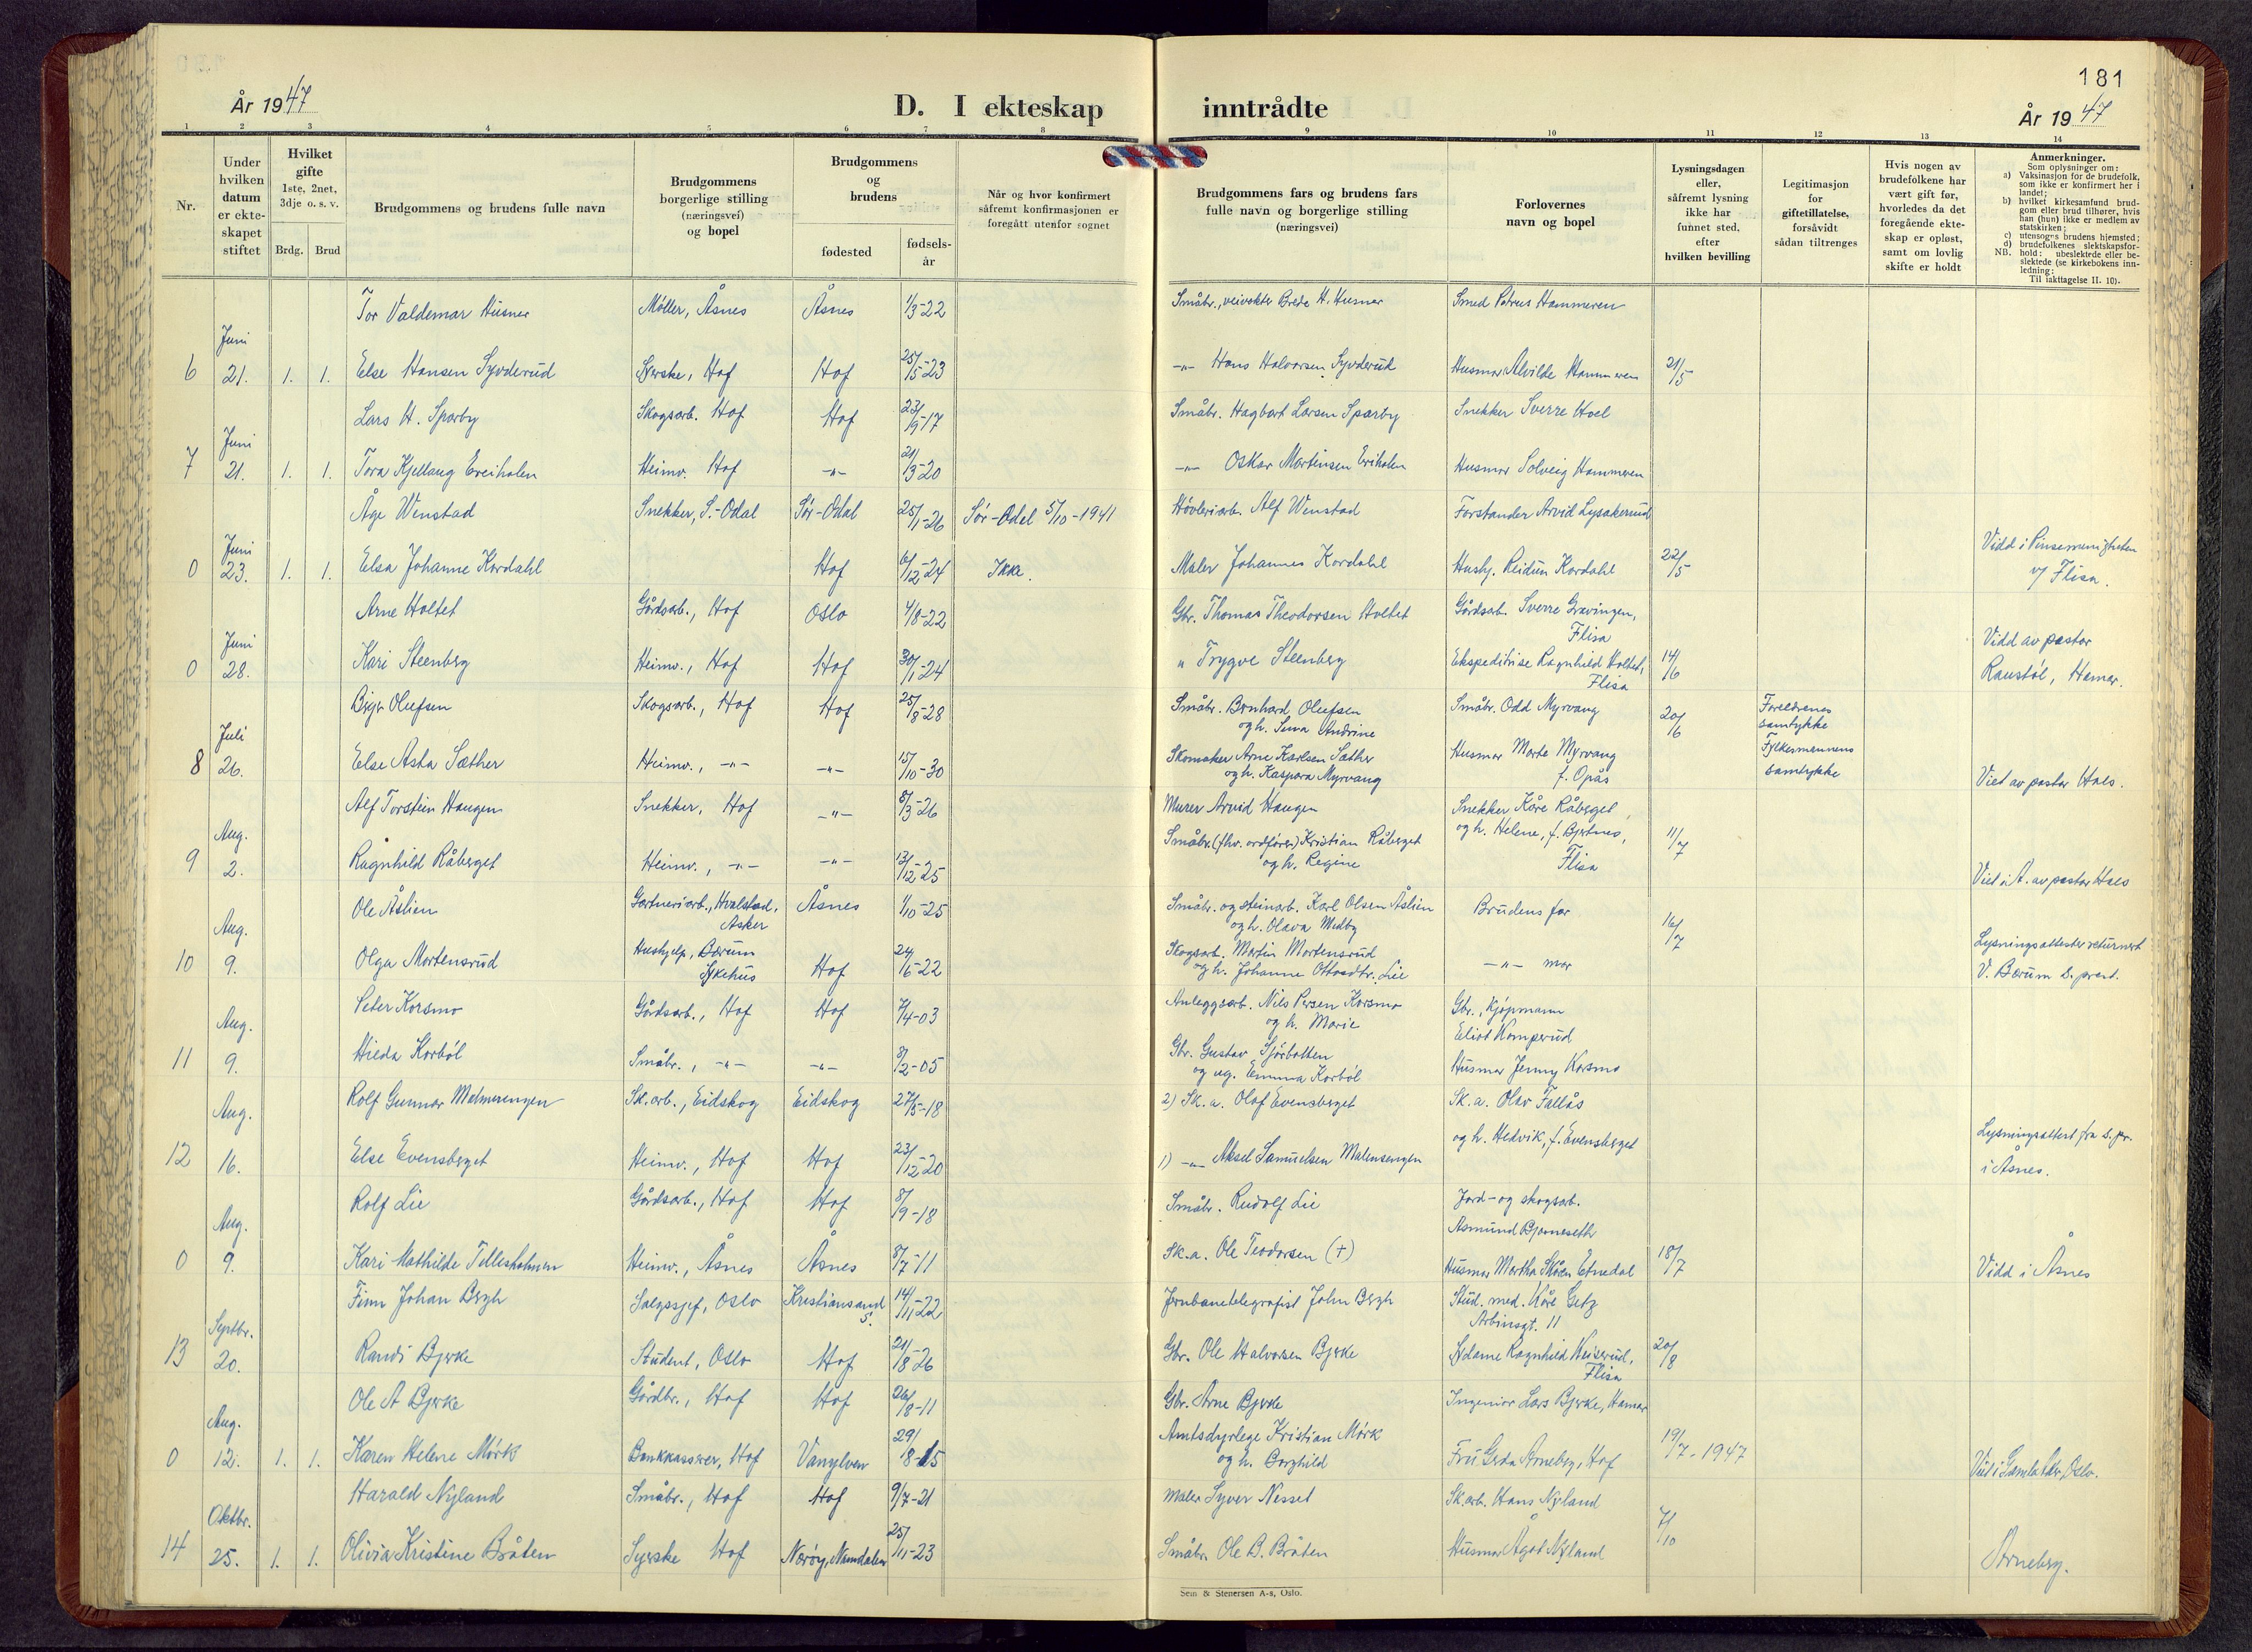 181
År 1947
D. I ekteskap inntrådte
År 1947
1 2 3 4 5 6 7 8 9 10 11 12 13 14
Nr.
Under hvilken datum er ekteskapet stiftet
Hvilket gifte 1ste, 2net, 3dje o. s. v.
Brdg. Brud
Brudgommens og brudens fulle navn
Brudgommens borgerlige stilling (næringsvei) og bopel
Brudgommens og brudens
fødested
fødsels-år
Når og hvor konfirmert såfremt konfirmasjonen er foregått utenfor sognet
Brudgommens fars og brudens fars fulle navn og borgerlige stilling (næringsvei)
Forlovernes navn og bopel
Lysningsdagen eller, såfremt lysning ikke har funnet sted, efter hvilken bevilling
Legitimasjon for giftetillatelse, forsåvidt sådan tiltrenges
Hvis nogen av brudefolkene har vært gift før, hvorledes da det foregående ekteskap er opløst, samt om lovlig skifte er holdt
Anmerkninger.
Som oplysninger om:
a) Vaksinasjon for de brudefolk, som ikke er konfirmert her i landet;
b) hvilket kirkesamfund brudgom eller brud tilhører, hvis han (hun) ikke er medlem av statskirken;
c) utensogns brudens hjemsted;
d) brudefolkenes slektskapsforhold: ubeslektede eller beslektede (se kirkebokens innledning;
NB. Til iakttagelse II. 10).
Tor Valdemar Husner Møller, Åsnes Åsnes 1/3-22 Småbr., veivokter Brede H. Husner Smed Petrus Hammeren
6 Juni 21. 1. 1. Else Hansen Syvderud Syerske, Hof Hof 25/5-23 -"- Hans Halvorsen Syvderud Husmor Alvilde Hammeren 21/5
Lars H. Sparby Skogsarb. Hof Hof 23/9-17 Småbr. Hagbart Larsen Sparby Snekker Sverre Hoel
7 Juni 21. 1. 1. Tora Kjellaug Ereiholen Heimv. Hof -"- 21/3-20 -"- Oskar Martinsen Eriholen Husmor Solveig Hammeren
Åge Wenstad Snekker, S.-Odal Sør-Odal 25/1-26 Sør-Odal 5/10-1941 Høvleriarb. Alf Wenstad Forstander Arvid Lysakerrud
0 Juni 23. 1. 1. Elsa Johanne Kordahl Hof 6/12-24 Ikke. Maler Johannes Kordahl Hushj. Reidun Kordahl 22/5 Vidd i Pinsemenigheten v/ Flisa.
Arne Holtet Gårdsarb., Hof Oslo 4/8-22 Gbr. Thomas Theodorsen Holtet Gårdsarb. Sverre Gravingen, Flisa
0 Juni 28. Kari Steenberg Heimv., Hof Hof 30/1-24 " Trygve Steenberg Ekspeditrise Ragnhild Holtet, Flisa 14/6 Vidd av pastor Raustøl, Hamar.
Birger Olufsen Skogsarb., Hof Hof 25/8-28 Småbr. Bernhard Olufsen og h. Andrine Småbr. Odd Myrvang 20/6 Foreldrenes samtykke
8 Juli 26. Else Asta Sæther Heimv., -"- -"- 15/10-30 Skomaker Arne Karlsen Sæther og h. Kaspara Myrvang Husmor Marte Myrvang f. Opås Fylkesmannens samtykke Viet av pastor Hals.
Alf Torstein Haugen Snekker, Hof -"- 8/3-26 Murer Arvid Haugen Snekker Kåre Råberget,
9 Aug. 2. Ragnhild Råberget Heimv., -"- -"- 13/12-25 Småbr. (fhv. ordfører) Kristian Råberget og h. Regine og h. Helene, f. Bjertnes, Flisa 11/7 Viet i A. av pastor Hals
Ole Åslien Gartneriarb., Hvalstad, Asker Åsnes 1/10-25 Småbr. og steinarb. Karl Olsen Åslien og h. Olava Medby Brudens far
10 Aug. 9. Olga Mortensrud Hushjelp, Bærum Sykehus Hof 24/6-22 Skogsarb. Martin Mortensrud og h. Johanne Ottosdtr. Lie -"- mor 16/7 Lysningsattester returnert V. Bærum s. prest.
Peter Korsmo Gårdsarb., Hof Hof 7/4-03 Anleggsarb. Nils Persen Korsmo og h. Marie Gbr., Kjøpmann Eliot Komperud
11 Aug. 9. Hilda Korbøl Småbr., -"- -"- 8/2-05 Gbr. Gustav Sjørbotten og ug. Emma Korbøl Husmor Jenny Korsmo
Rolf Gunnar Malmerengen Sk. arb., Eidskog Eidskog 27/5-18 2) Sk. a. Olaf Evensberget Sk. a. Olav Fallås
12 Aug. 16. Else Evensberget Heimv., Hof Hof 23/12-20 1) -"- Aksel Samuelsen Malmerengen og h. Hedvik, f. Evensberget Lysningsattest fra s. pr. i Åsnes.
Rolf Lie Gårdsarb., Hof Hof 8/9-18 Småbr. Rudolf Lie Jord- og skogsarb. Asmund Bjørneseth
0 Aug. 9. Kari Mathilde Tellesholmen Heimv., Åsnes Åsnes 8/7-11 Sk. a. Ole Teodorsen (+) Husmor Martha Skåen Etnedal 18/7 Vidd i Åsnes
Finn Johan Bergh Salgssjef, Oslo Kristiansand S. 14/11-22 Jernbanetelegrafist John Bergh Stud. med. Kåre Getz Arbinsgt. 11
13 Septbr. 20. Randi Bjerke Student, Oslo Hof 21/8-26 Gbr. Ole Halvorsen Bjerke Sydame Ragnhild Heiserud, Flisa 20/8
Ole A Bjerke Gårdbr., Hof Hof 26/8-11 Gbr. Arne Bjerke Ingeniør Lars Bjerke, Hamar
0 Aug. 12. 1. 1. Karen Helene Mørk Bankkasserer, Hof Vanylven 29/8-15 Amtsdyrlege Kristian Mørk og h. Borghild Fru Gerda Arneberg, Hof 19/7-1947 Viet i Gamle Aker, Oslo.
Harald Nyland Småbr., Hof Hof 9/7-21 Maler Syver Nesset Sk.arb. Hans Nyland
14 Oktbr. 25. 1. 1. Olivia Kristine Bråten Syerske Hof Nærøy, Namdalen 25/11-23 Småbr. Ole B. Bråten Husmor Ågot Nyland 7/10 Arneberg.
Sem & Stenersen A-s, Oslo.